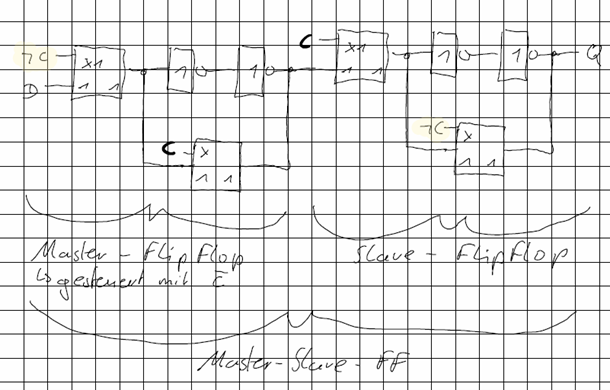 ¬C
D
X1
1 1
1
1
C
X
1 1
C
X1
1 1
1
1
Q
¬C
X
1 1
Master-FlipFlop
↳ gesteuert mit C̅
Slave-FlipFlop
Master-Slave-FF